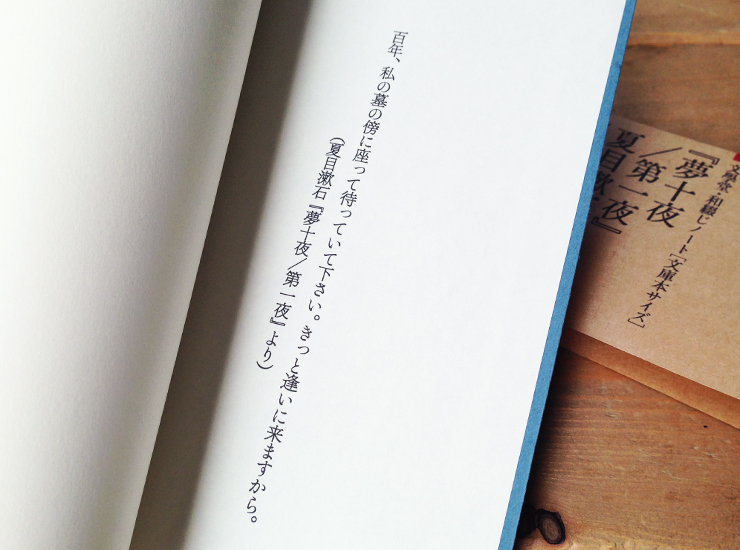 百年、私の墓の傍に座って待っていて下さい。きっと逢いに来ますから。
(夏目漱石『夢十夜/第一夜』より)
文學堂・和綴じノート[文庫本サイズ]
『夢十夜
/第一夜』
夏目漱